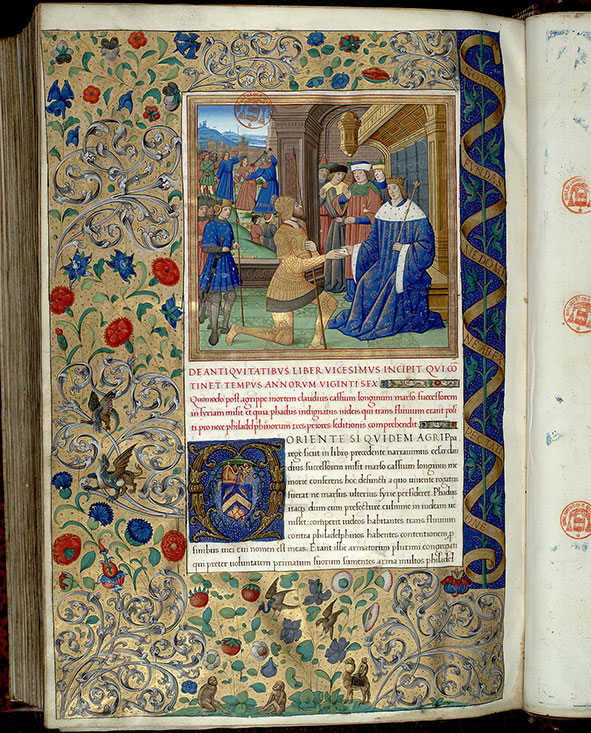 DE ANTIQVITATIBVS LIBER VICESIMVS INCIPIT QVI CO
TINET TEMPVS ANNORVM VIGINTI SEX
Quomodo post agrippe mortem claudius cassium longinum marso successorem
in syriam misit et quia phadus indignatus iudeis qui trans fluuium erant pos
ti pro nece philadelphinorum tres priores seditionis comprehendit
ORIENTE SI QVIDEM AGRIP
rege sicut in libro precedente narrauimus cesar clau
dius successorem misit marso cassium longinum me
morie conferens hoc defuncti a quo uiuente rogatus
fuerat ne marsus ulterius syrie presideret Phadus
itaq dum cum prefecture culmine in iudeam ue
nisset comperit iudeos habitantes trans fluuium
contra philadelphinos habentes contentionem p
finibus uici cui nomen est meas Erant issie armatorum plurimi congregati
qui preter uoluntatem primatum suorum sumentes arma multos philadel